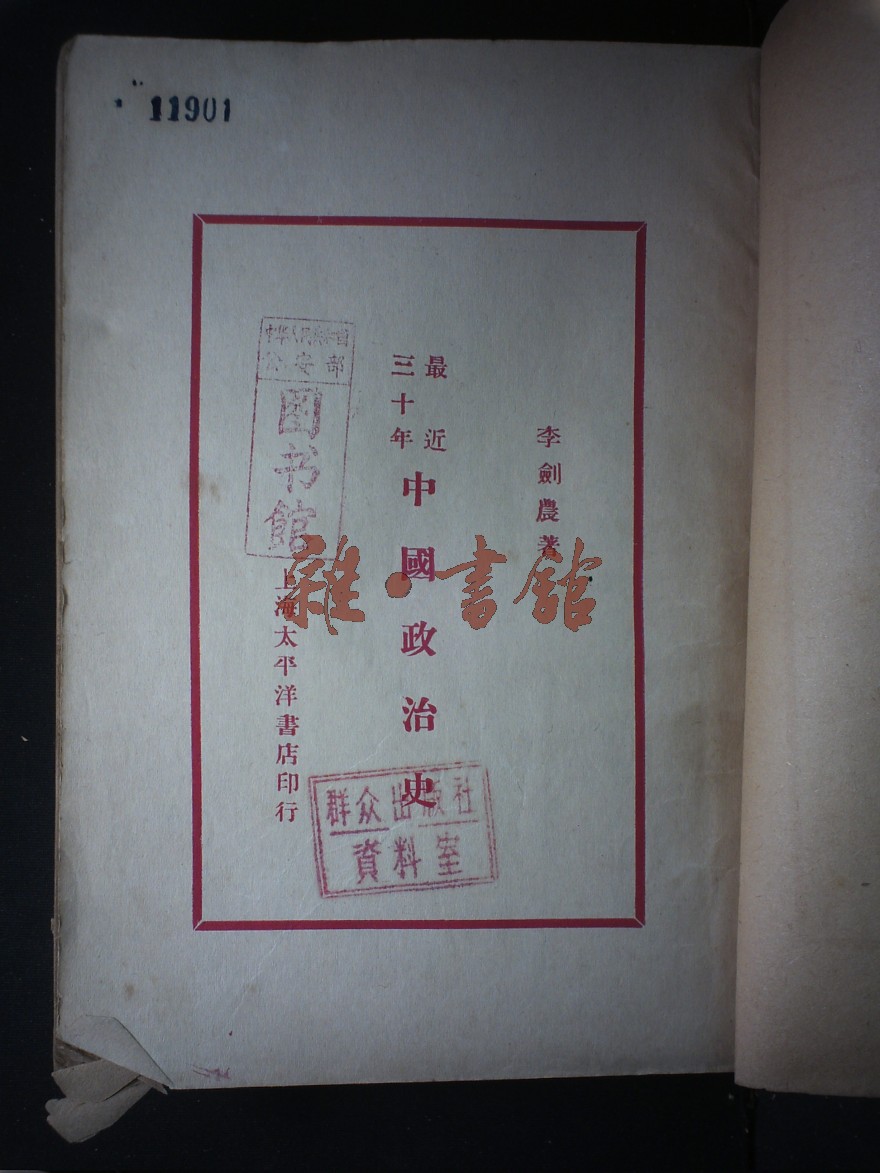 11901
李劍農著
最近
三十年
中國政治史
上海太平洋書店印行
中华人民共和国
公安部
图书馆
群众出版社
資料室
雜·書館